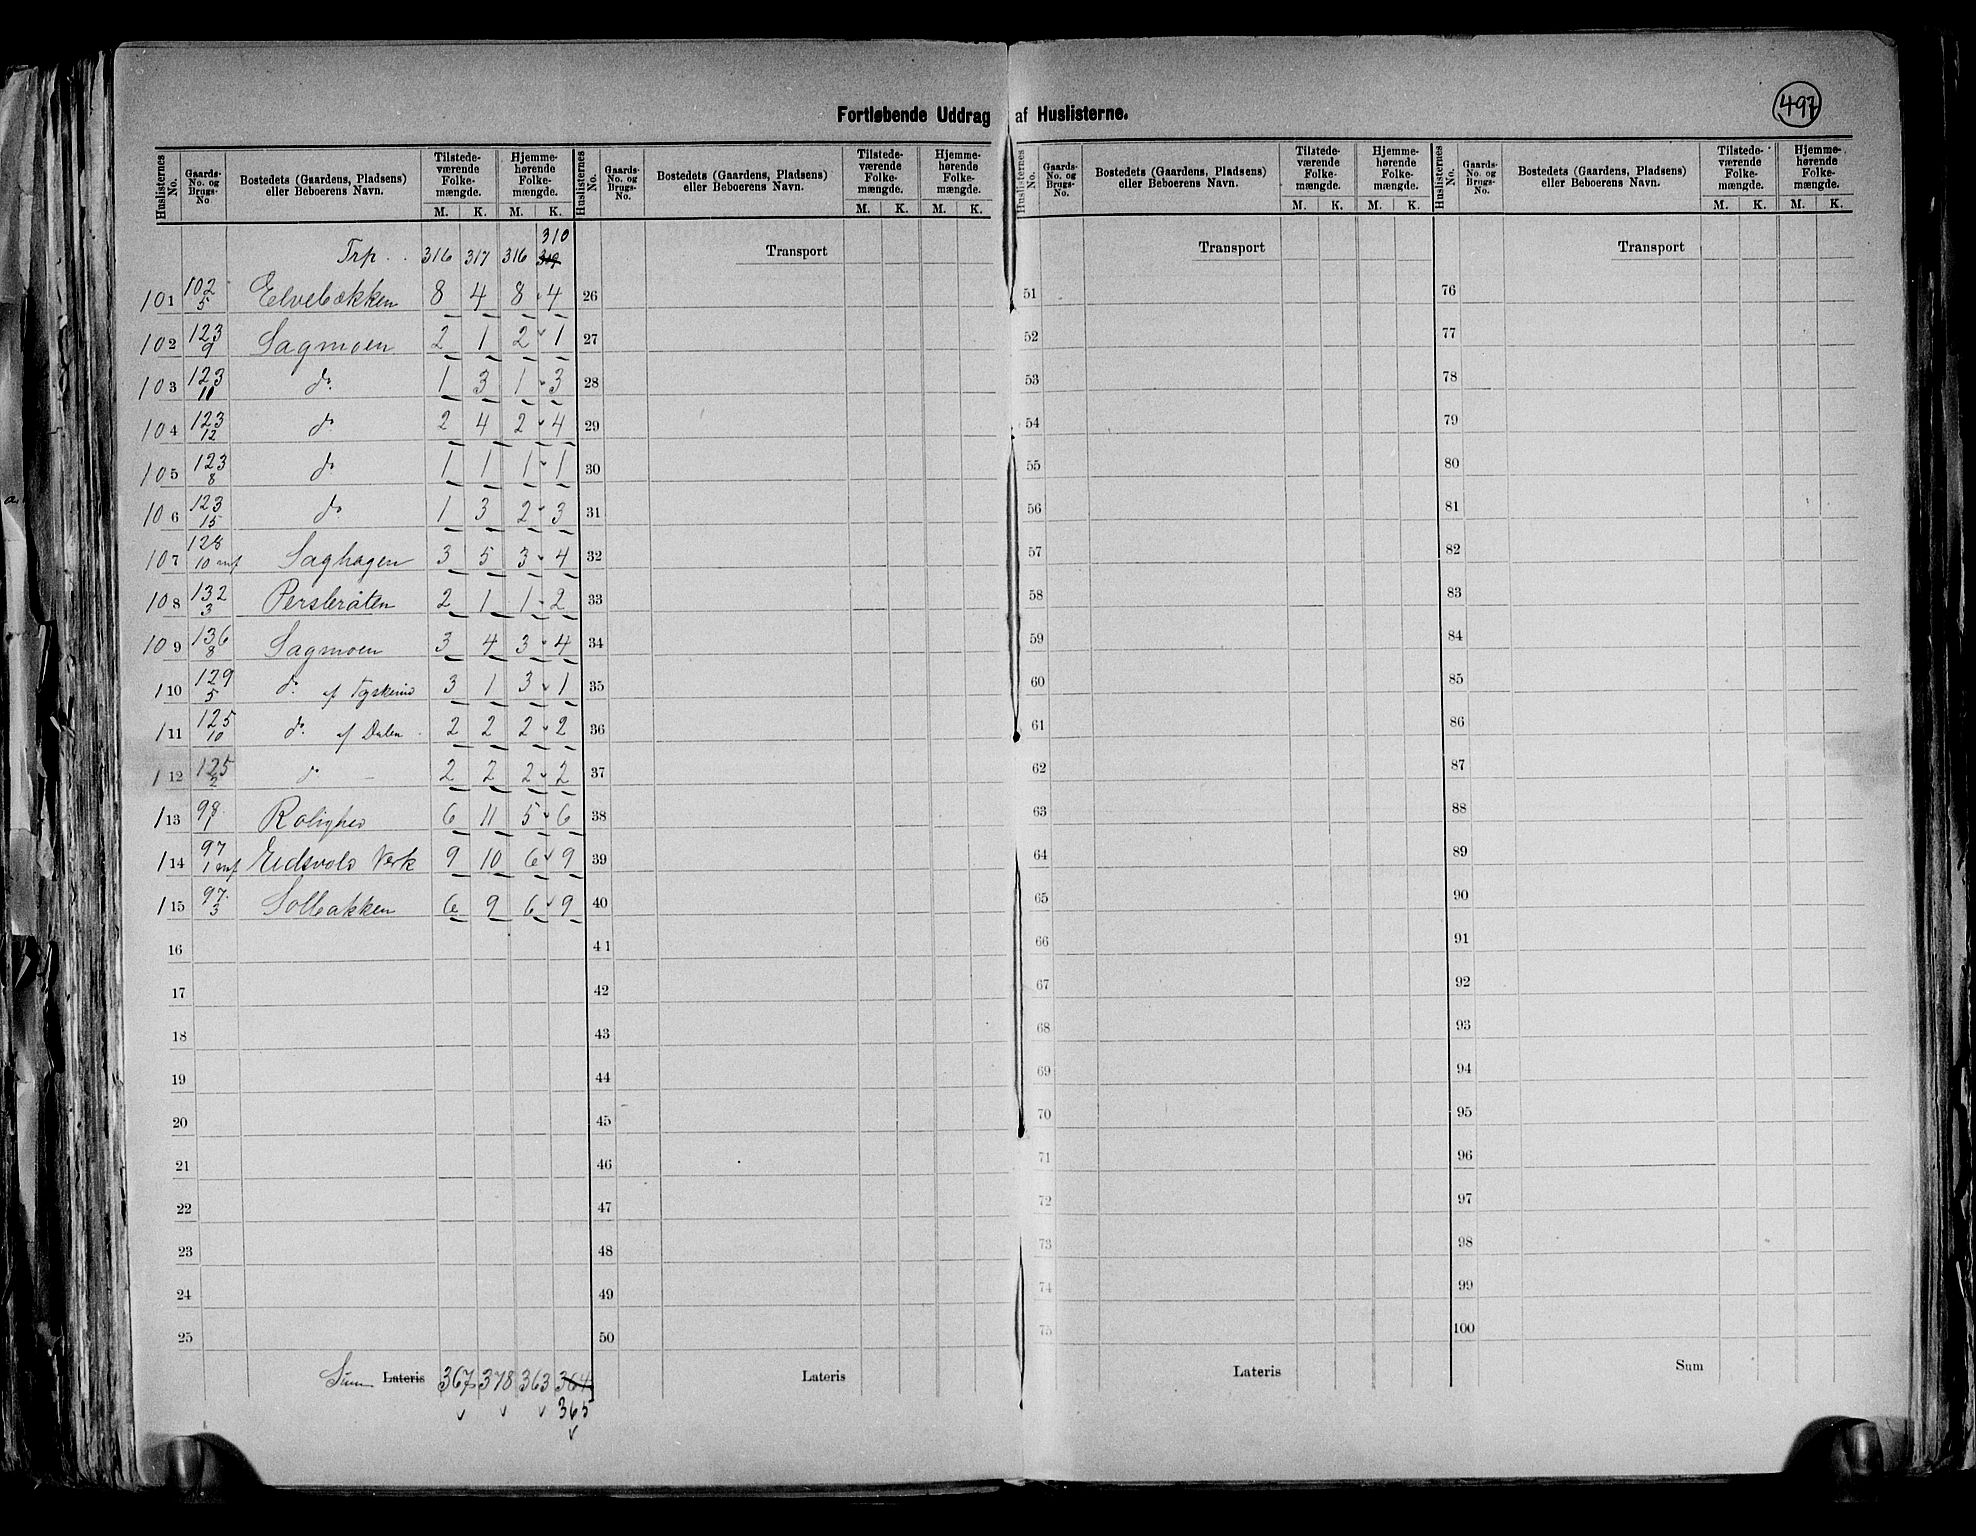 Fortløbende Uddrag af Huslisterne.
497
Huslisternes No. | Gaards-No. og Brugs-No | Bostedets (Gaardens, Pladsens) eller Beboerens Navn. | Tilstedeværende Folkemængde. M. K. | Hjemmehørende Folkemængde. M. K.
Trp. 316 317 316 319 310
101 102/5 Elvebækken 8 4 8 4
102 123/9 Sagmoen 2 1 2 1
103 123/10 do. 1 3 1 3
104 123/12 do 2 4 2 4
105 123/8 do 1 1 1 1
106 123/15 do 1 3 2 3
107 128/10 mf Saghagen 3 5 3 4
108 132/3 Persbråten 2 1 1 2
109 136/8 Sagmoen 3 4 3 4
110 129/5 do. af 3 1 3 1
111 125/10 do. af Dalen 2 2 2 2
112 125/2 do — 2 2 2 2
113 98/1 Rolighed 6 11 5 6
114 97/1 mf Eidsvold Verk 9 10 6 9
115 97/3 Solbakken 6 9 6 9
16
17
18
19
20
21
22
23
24
25
Sum Lateris 367 378 363 364
365
Huslisternes No. | Gaards-No. og Brugs-No. | Bostedets (Gaardens, Pladsens) eller Beboerens Navn. | Tilstedeværende Folkemængde. M. K. | Hjemmehørende Folkemængde. M. K.
Transport
26
27
28
29
30
31
32
33
34
35
36
37
38
39
40
41
42
43
44
45
46
47
48
49
50
Lateris
Huslisternes No. | Gaards-No. og Brugs-No. | Bostedets (Gaardens, Pladsens) eller Beboerens Navn. | Tilstedeværende Folkemængde. M. K. | Hjemmehørende Folkemængde. M. K.
Transport
51
52
53
54
55
56
57
58
59
60
61
62
63
64
65
66
67
68
69
70
71
72
73
74
75
Lateris
Huslisternes No. | Gaards-No. og Brugs-No. | Bostedets (Gaardens, Pladsens) eller Beboerens Navn. | Tilstedeværende Folkemængde. M. K. | Hjemmehørende Folkemængde. M. K.
Transport
76
77
78
79
80
81
82
83
84
85
86
87
88
89
90
91
92
93
94
95
96
97
98
99
100
Sum